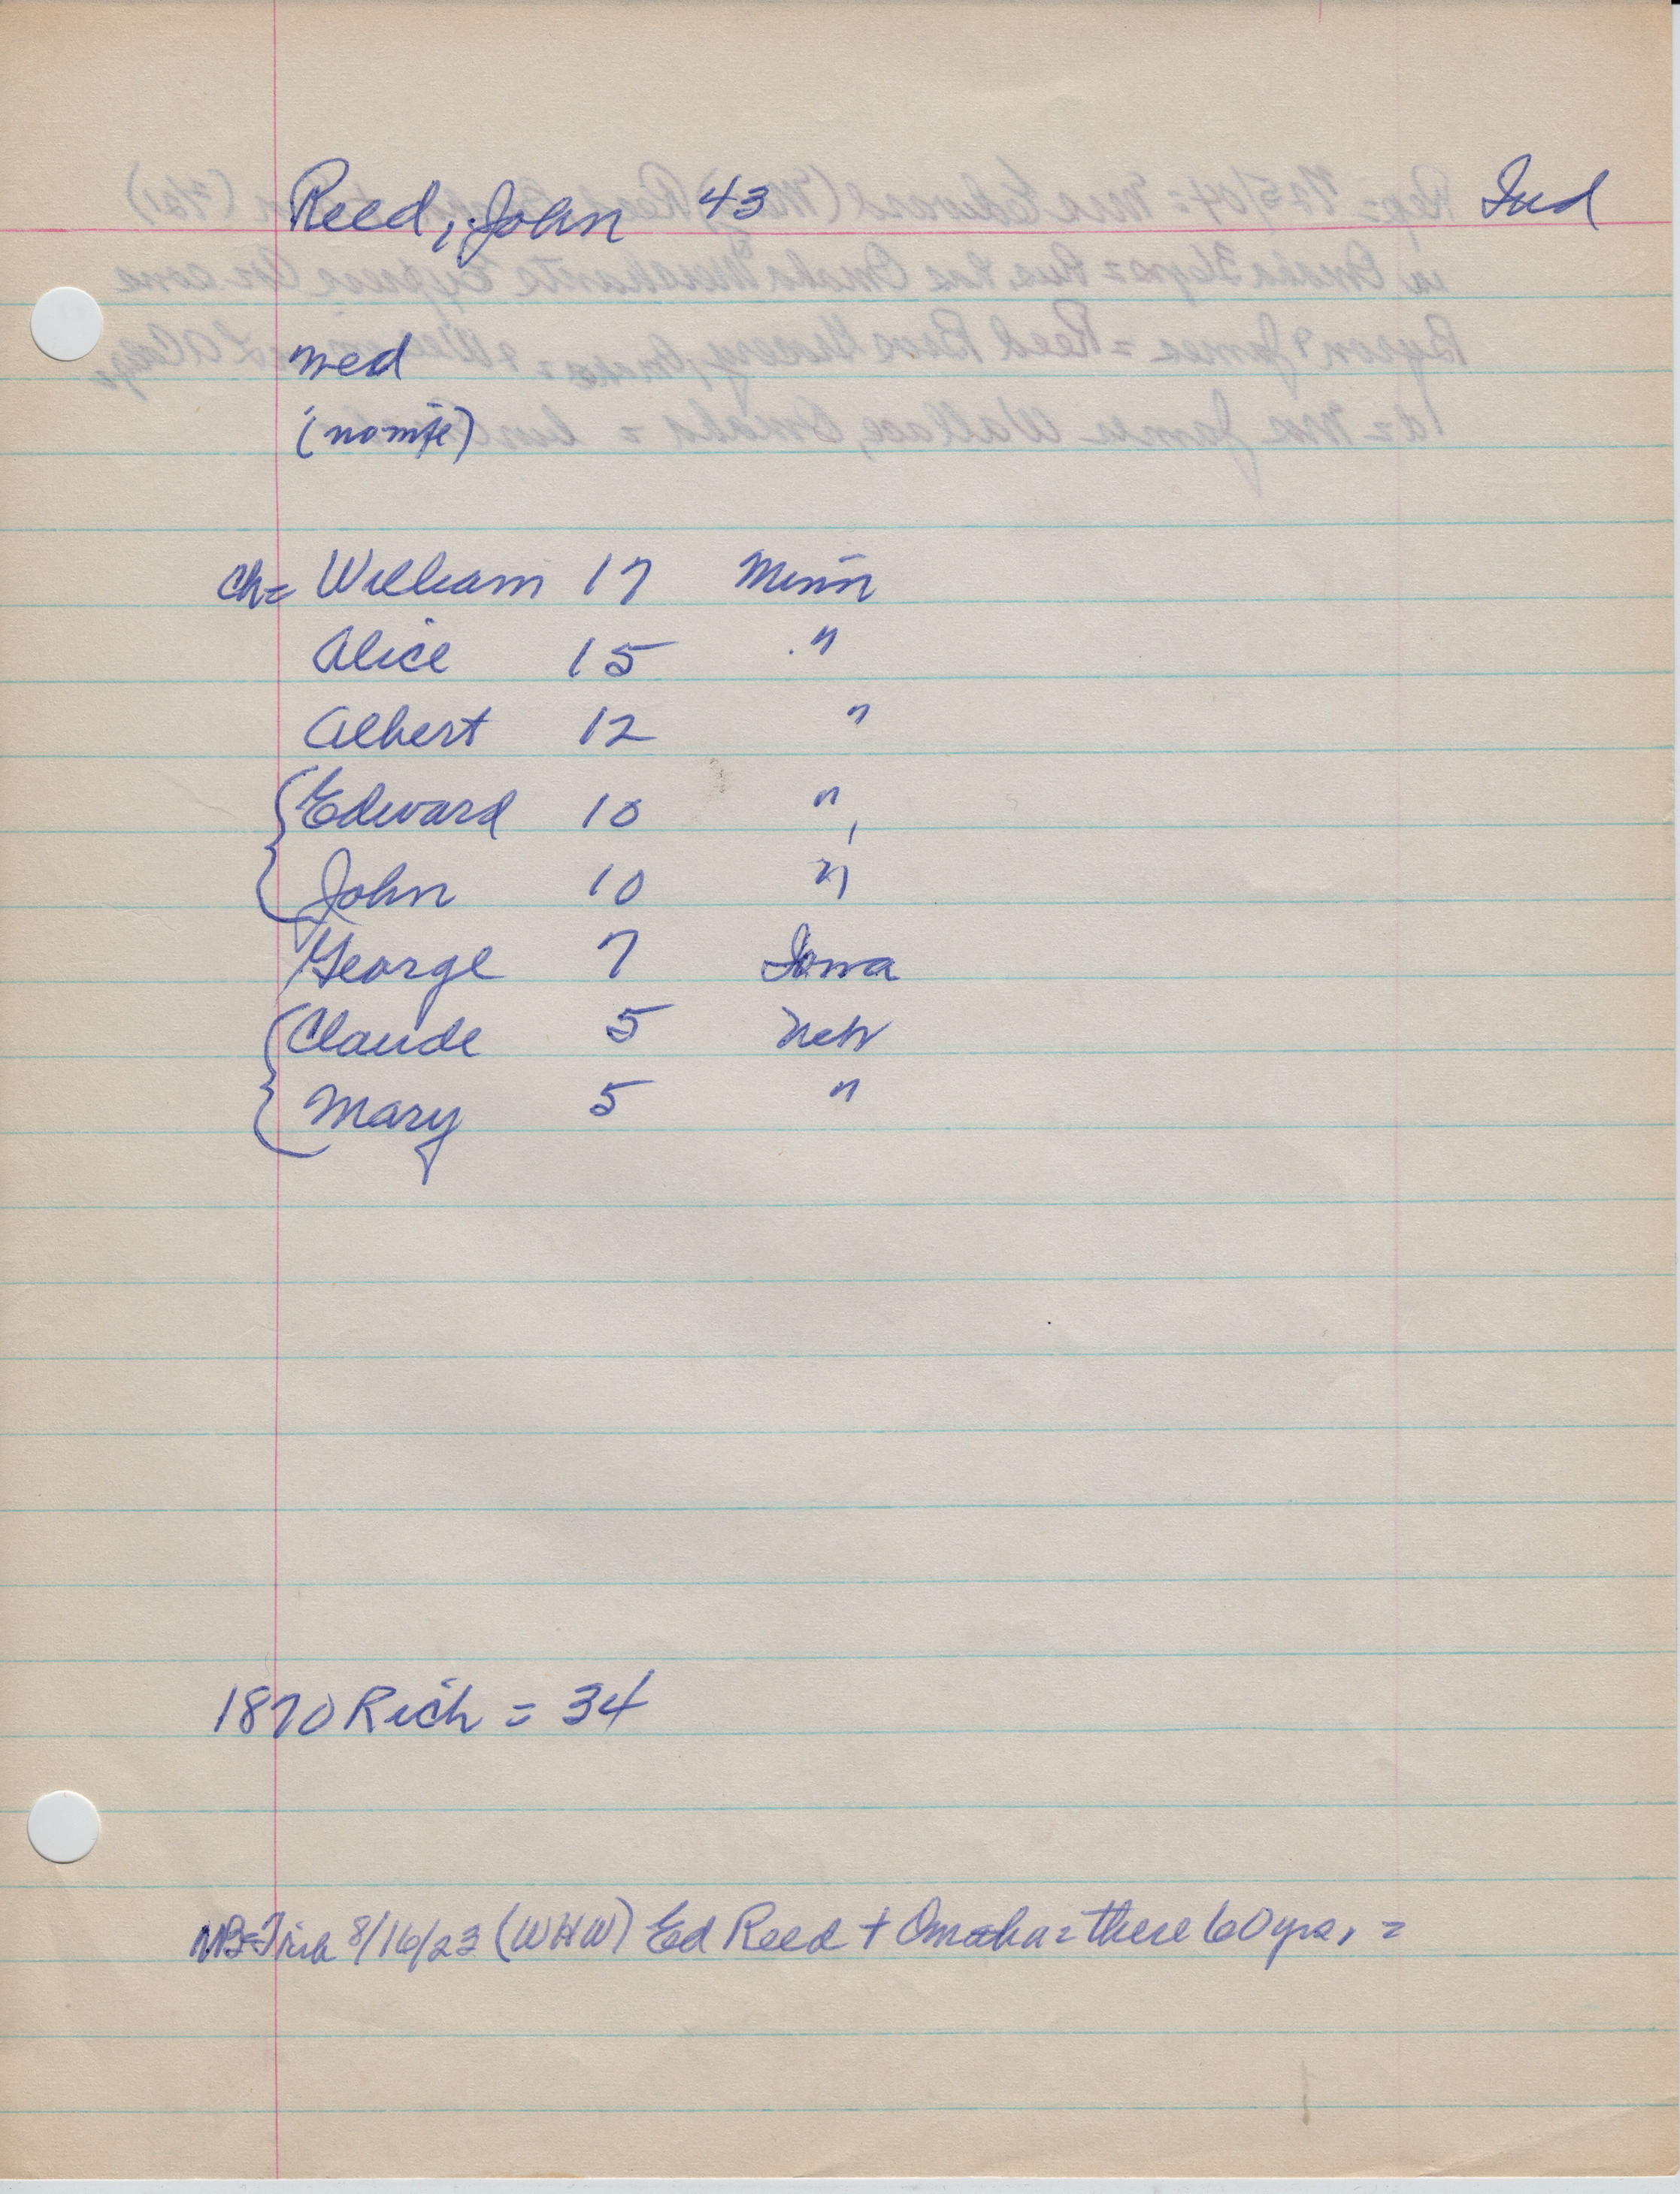 Reed, John 43 Ind
med
(no wife)
Ch= William 17 Minn
Alice 15 "
Albert 12 "
{Edward 10 "
{John 10 "
George 7 Iowa
{Claude 5 Neb
{Mary 5 "
1870 Rich = 34
8/16/23 (WHW) Ed Reed + Omaha = there 60 yrs, =